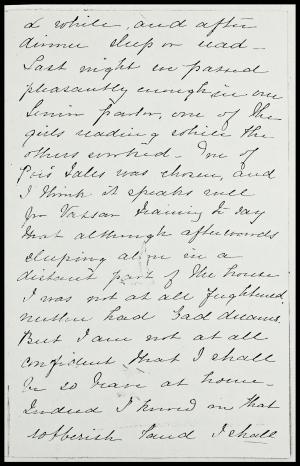 a while, and after
dinner sleep or read -
Last night we passed
pleasantly enough in our
Senior parlor, one of the
girls reading while the
others worked - One of
Poe's Tales was chosen, and
I think it speaks well
for Vassar training to say
that although afterwards
sleeping alone in a
distant part of the house
I was not at all frightened,
neither had bad dreams.
But I am not at all
confident that I shall
be so brave at home -
Indeed I know in that
robberish land I shall